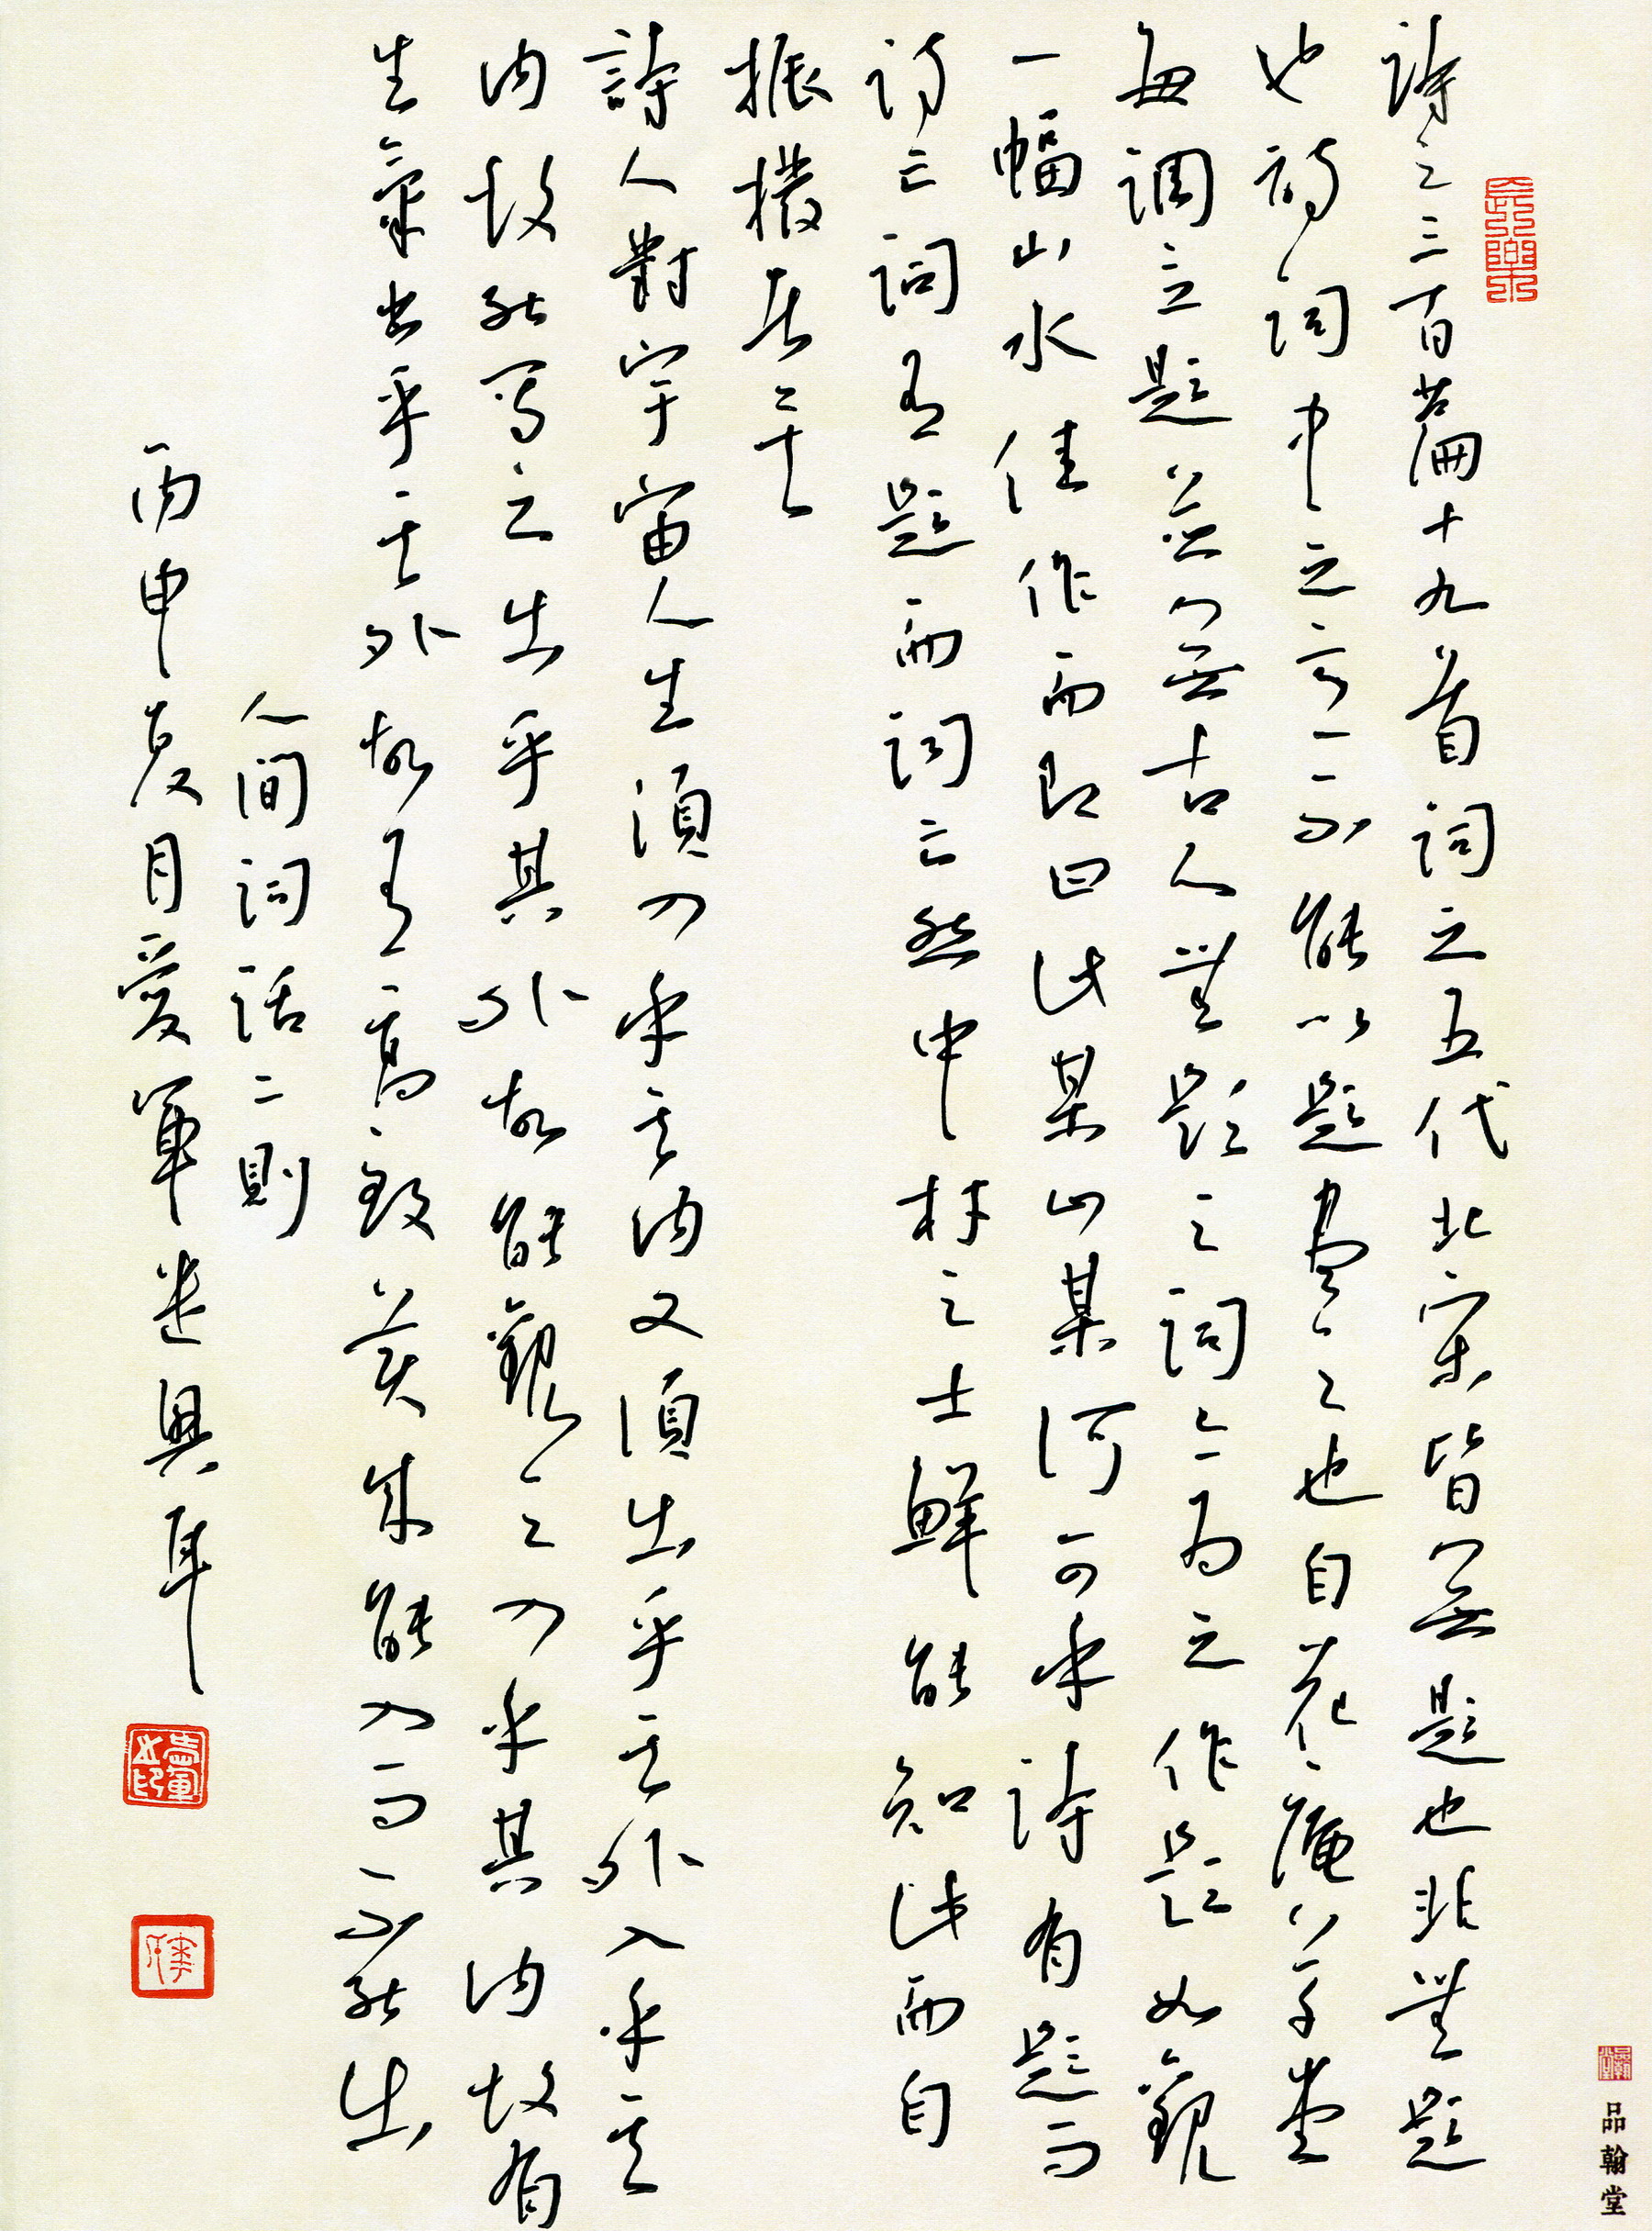 詩之三百篇十九首詞之五代北宋皆無題也非無題
也詩詞中之意不能以題盡之也自花庵草堂
每調立題並無古人無題之詞亦為之作題如觀
一幅山水佳作而即曰此某山某河可乎詩有題而
詩亡詞有題而詞亡然中材之士鮮能知此而自
振撥者矣
詩人對宇宙人生須入乎其內又須出乎其外入乎其
內故能寫之出乎其外故能觀之入乎其內故有
生氣出乎其外故有高致美成能入而不能出
人間詞話二則
丙申夏月愛軍遣興耳
品翰堂